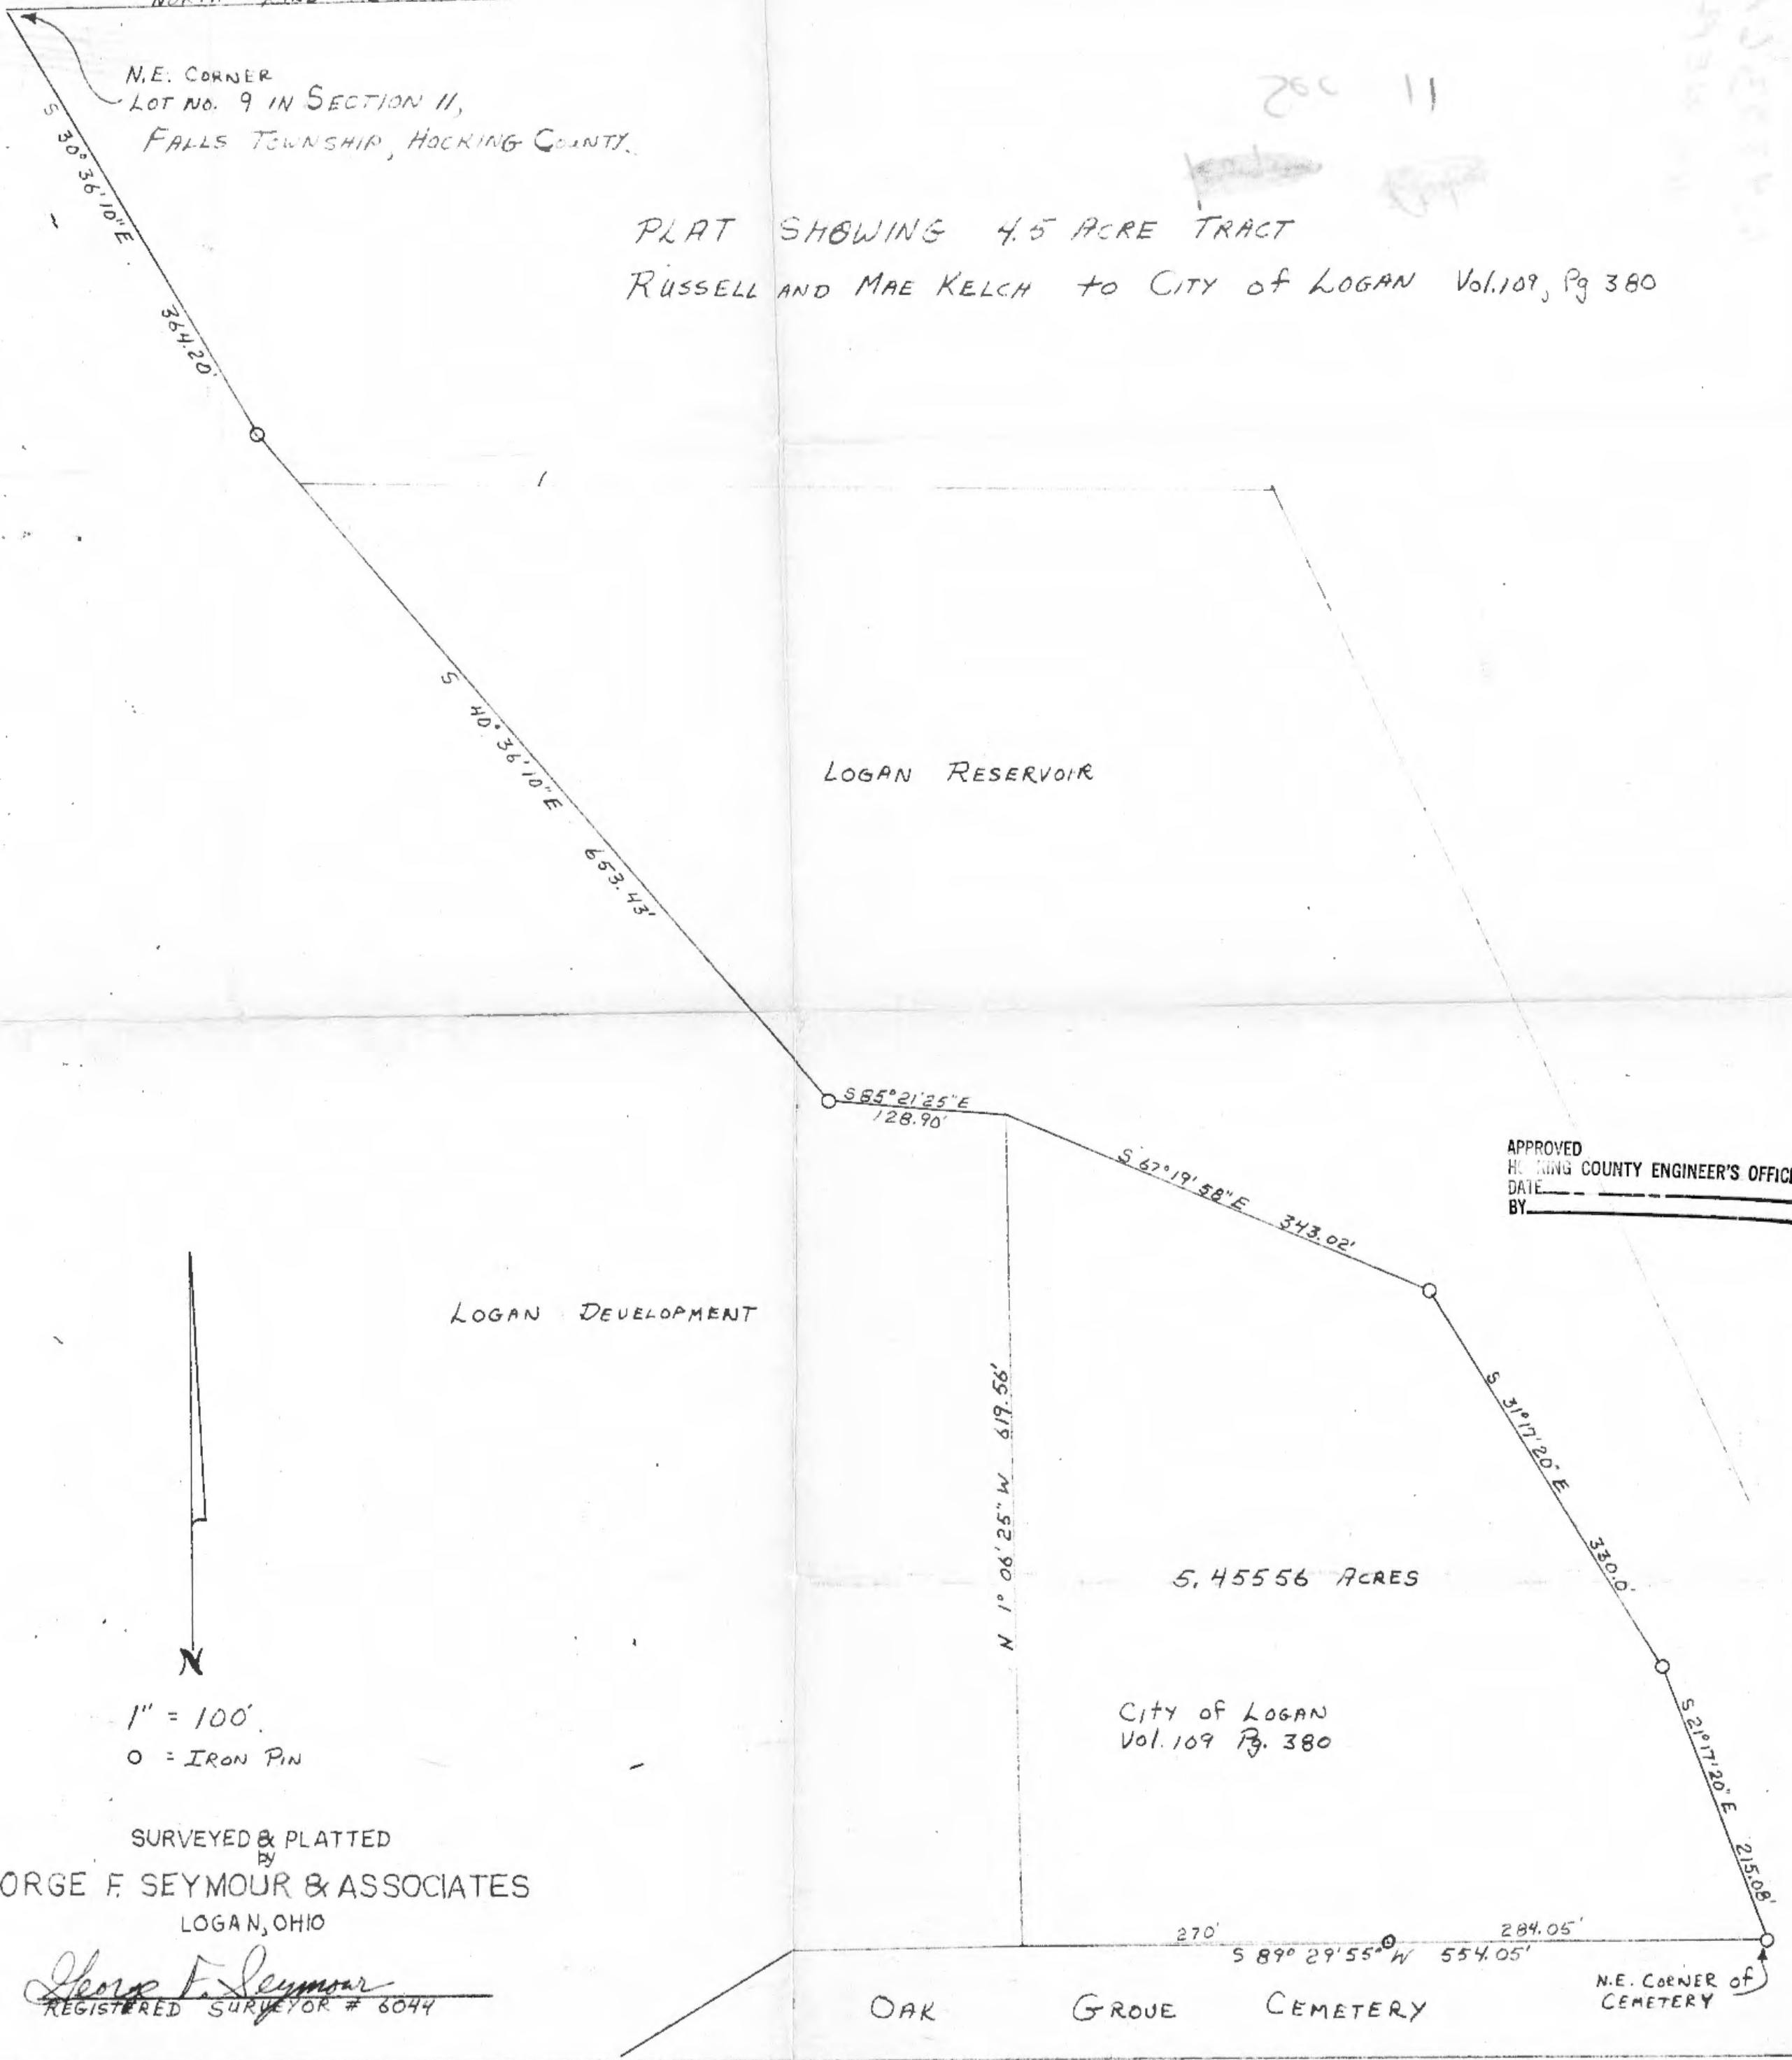 NORTH LINE
N.E. CORNER
LOT NO. 9 IN SECTION 11,
FALLS TOWNSHIP, HOCKING COUNTY.
Sec 11
PLAT SHOWING 4.5 ACRE TRACT
RUSSELL AND MAE KELCH to CITY of LOGAN Vol.109, Pg 380
S 30° 36' 10" E
364.20'
S 40° 36' 10" E
653.43'
LOGAN RESERVOIR
S 85° 21' 25" E
128.90'
S 67° 19' 58" E 343.02'
APPROVED
HOCKING COUNTY ENGINEER'S OFFIC
DATE
BY
LOGAN DEVELOPMENT
N 1° 06' 25" W 619.56'
S 31° 17' 20" E
330.0'
5.45556 ACRES
City of LOGAN
Vol. 109 Pg. 380
S 21° 17' 20" E
215.08'
N
1" = 100'.
O = IRON PIN
SURVEYED & PLATTED
By
ORGE F. SEYMOUR & ASSOCIATES
LOGAN, OHIO
George F. Seymour
REGISTERED SURVEYOR # 6044
270' 284.05'
S 89° 29' 55" W 554.05'
N.E. CORNER of
CEMETERY
OAK GROVE CEMETERY